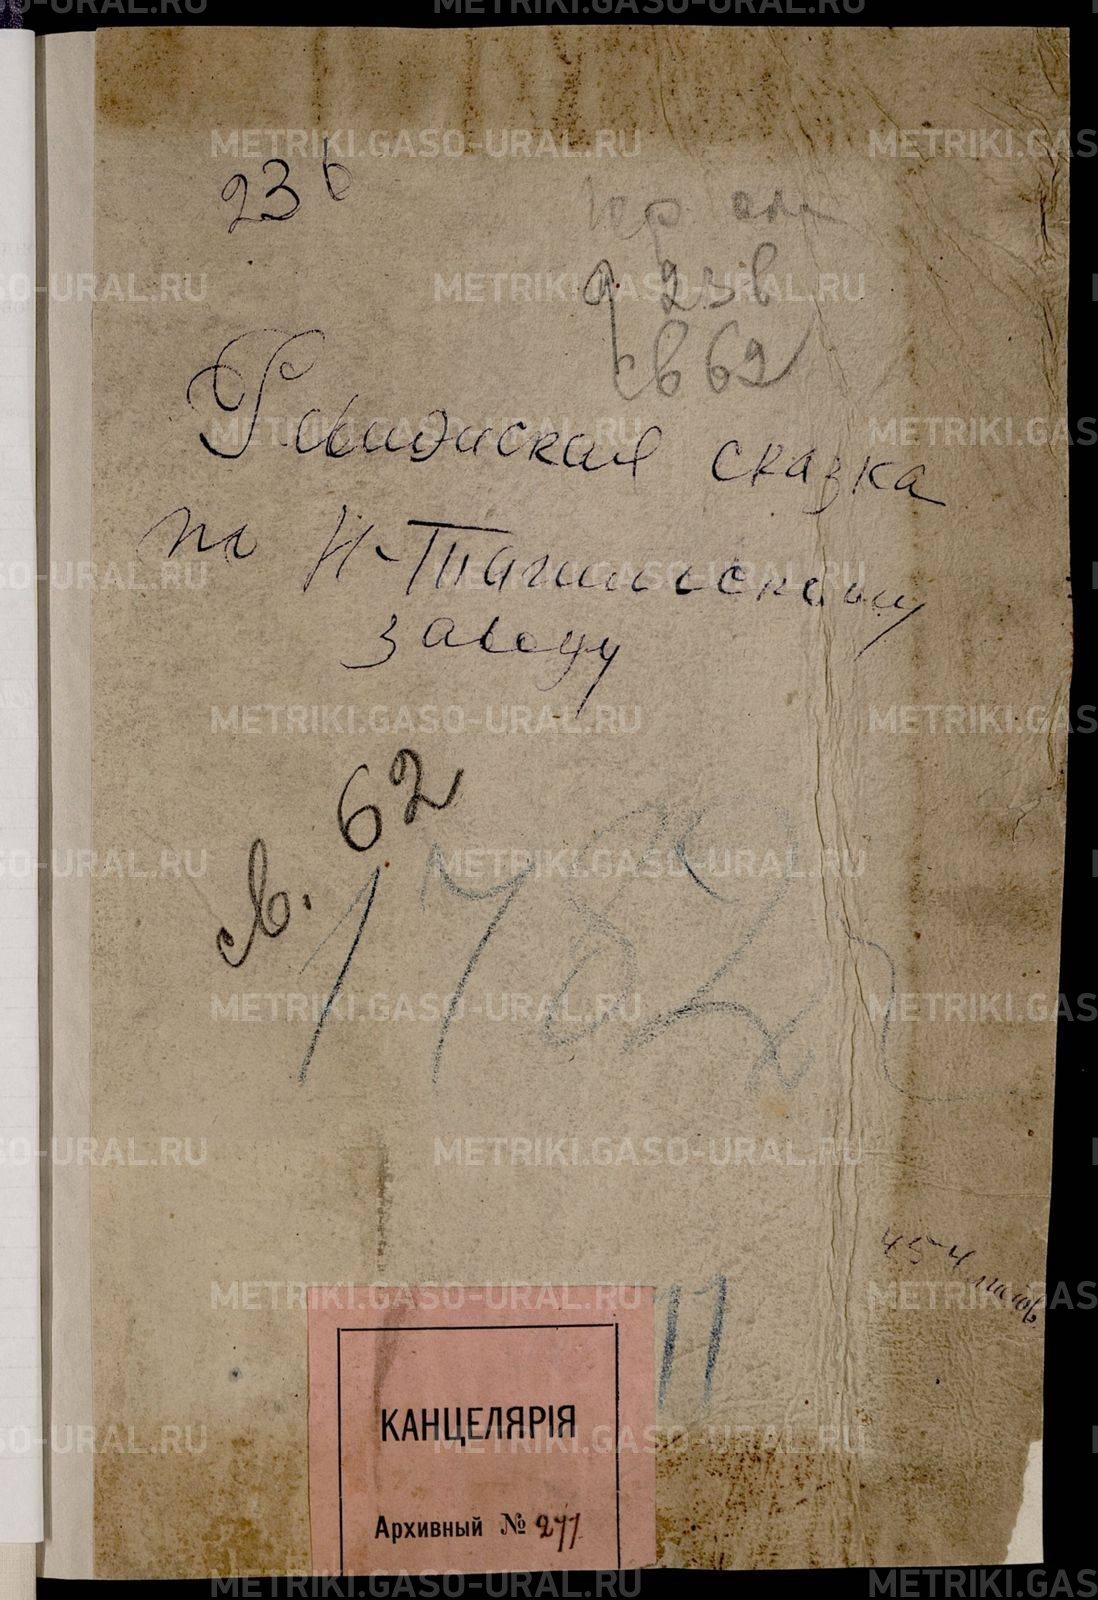 23 в
д 23в
св 62
Ревизская сказка
по Н-Тагильскому
заводу
св. 62
1782
454 листов
11
КАНЦЕЛЯРІЯ
Архивный № 277
METRIKI.GASO-URAL.RU